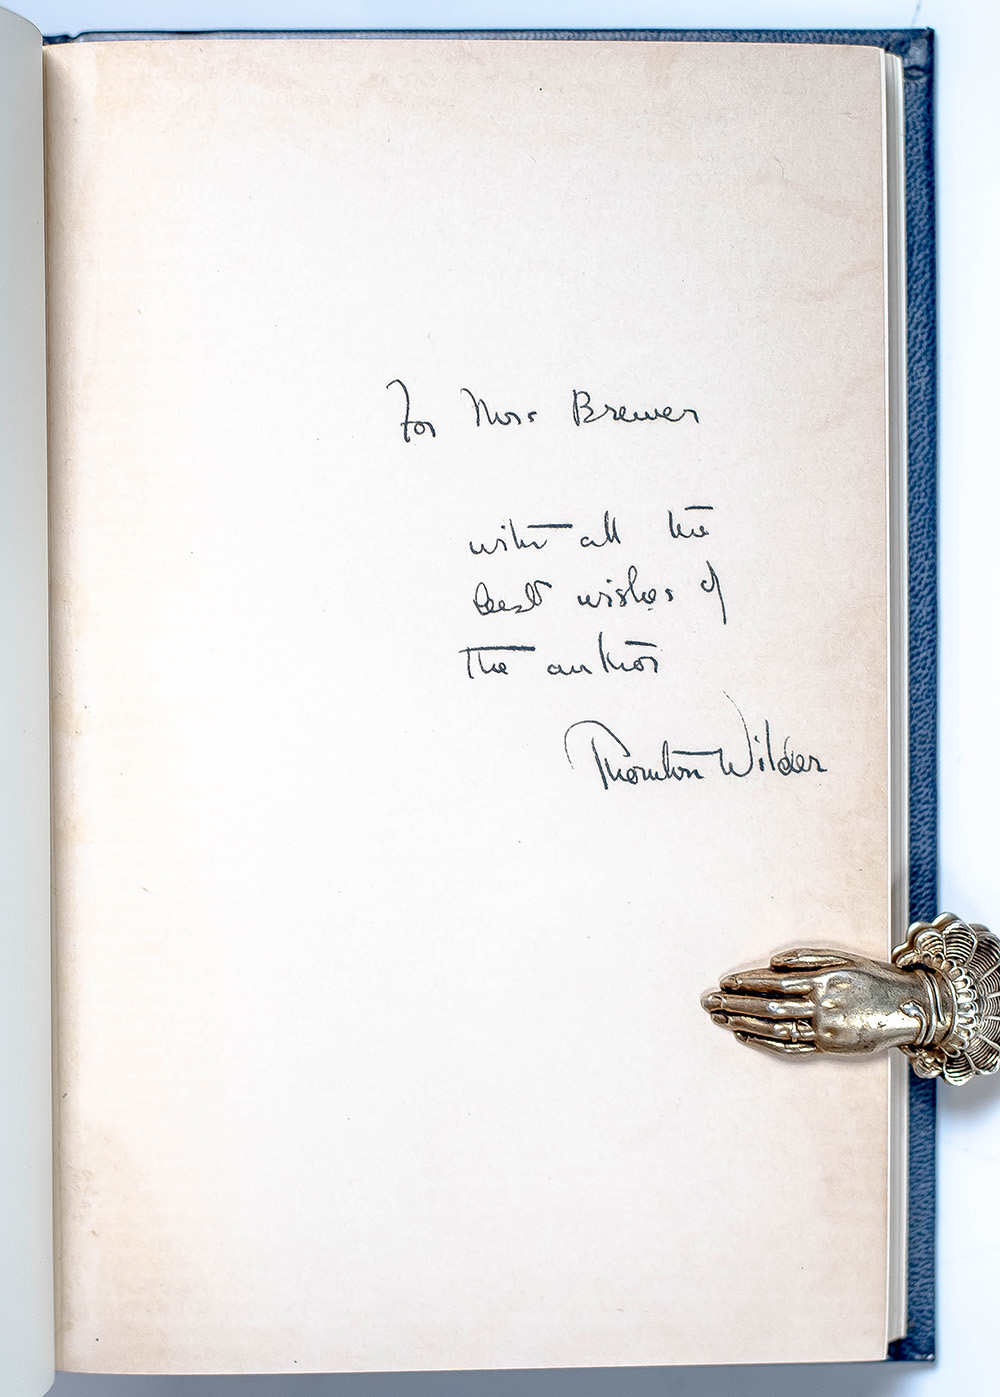 For Miss Brewer
with all the
best wishes of
the author
Thornton Wilder